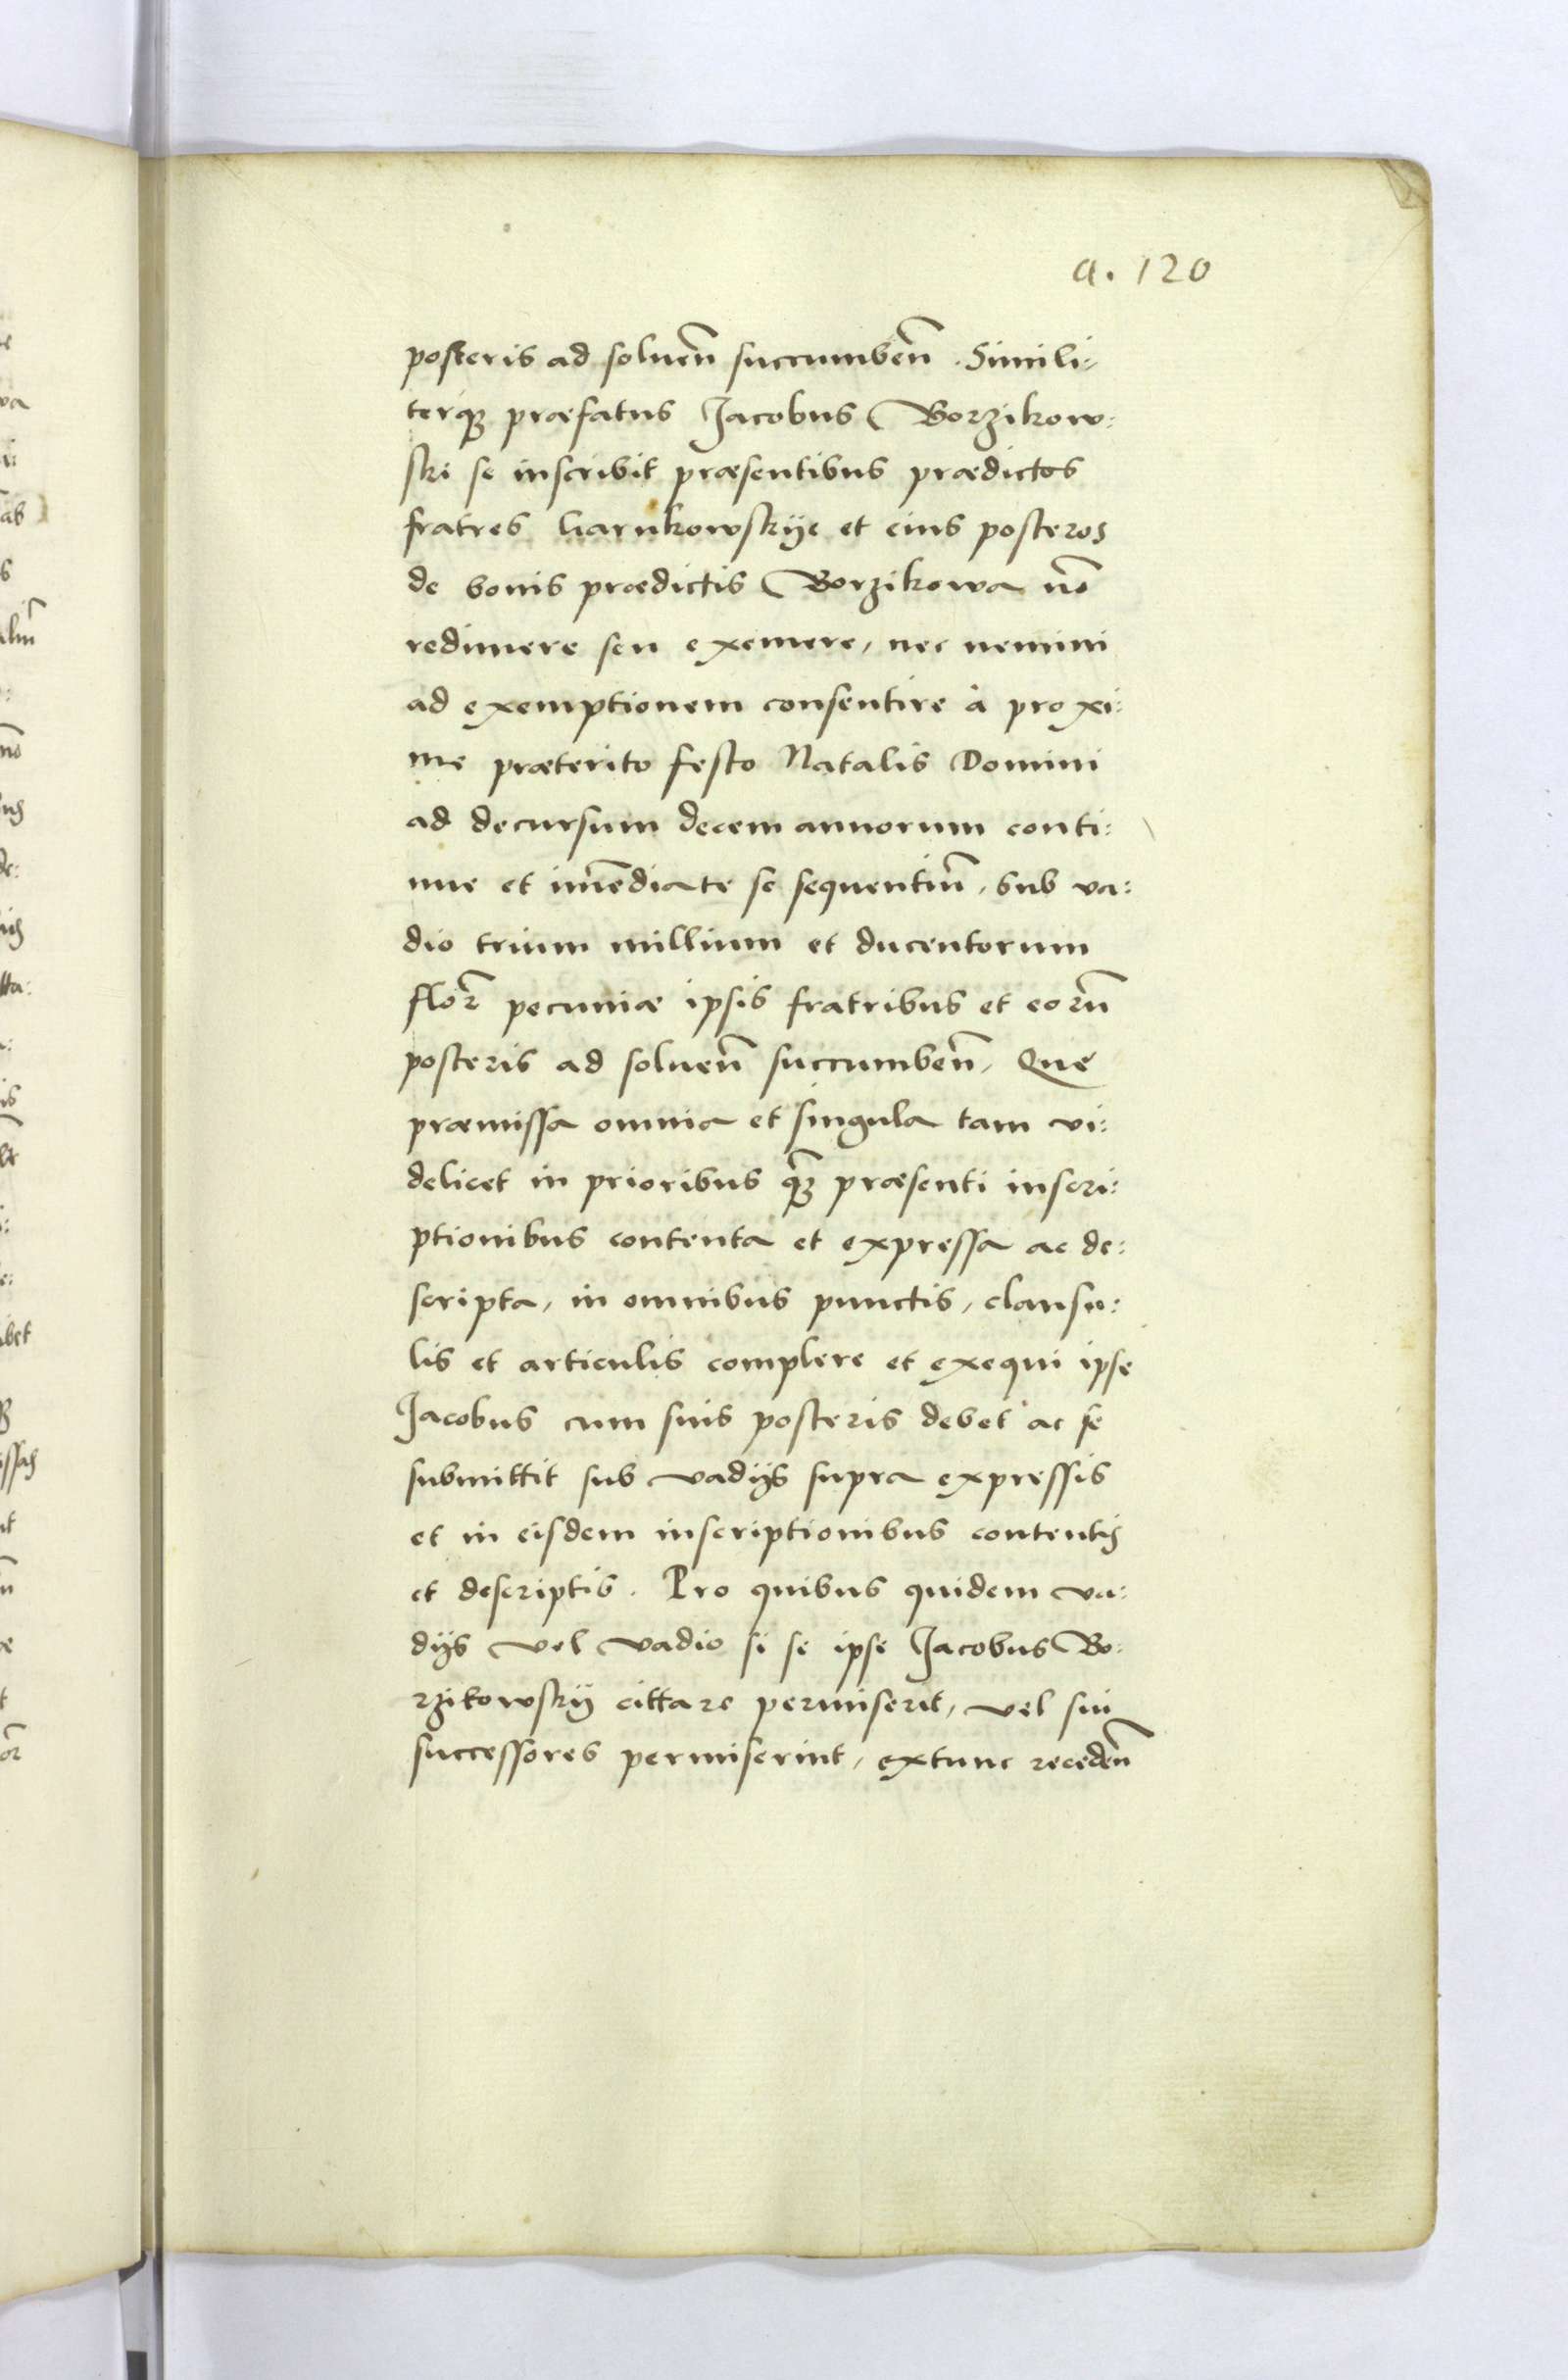 a. 120
posteris ad soluen̄ succumben̄. Simili-
terq₃ præfatus Jacobus Borzikow:
ski se inscribit præsentibus prædictos
fratres Karnkowskÿe et eius posteros
de bonis prædictis Borzikowa nō
redimere seu exemere, nec nemini
ad exemptionem consentire à proxi:
me præterito festo Natalis Domini
ad decursum decem annorum conti:
nue et im̄ediate se sequentiū, sub va:
dio trium millium et ducentorum
flor̄ pecuniæ ipsis fratribus et eorū
posteris ad soluen̄ succumben̄, Que
præmissa omnia et singula tam vi:
delicet in prioribus q̄₃ præsenti inscri:
ptionibus contenta et expressa ac de:
scripta, in omnibus punctis, clausu:
lis et articulis complere et exequi ipse
Jacobus cum suis posteris debet ac se
submittit sub vadÿs supra expressis
et in eisdem inscriptionibus contentis
et descriptis. Pro quibus quidem va:
dÿs vel vadio si se ipse Jacobus Bo:
rzikowskÿ cittare permiserit, vel sui
successores permiserint, extunc receden̄